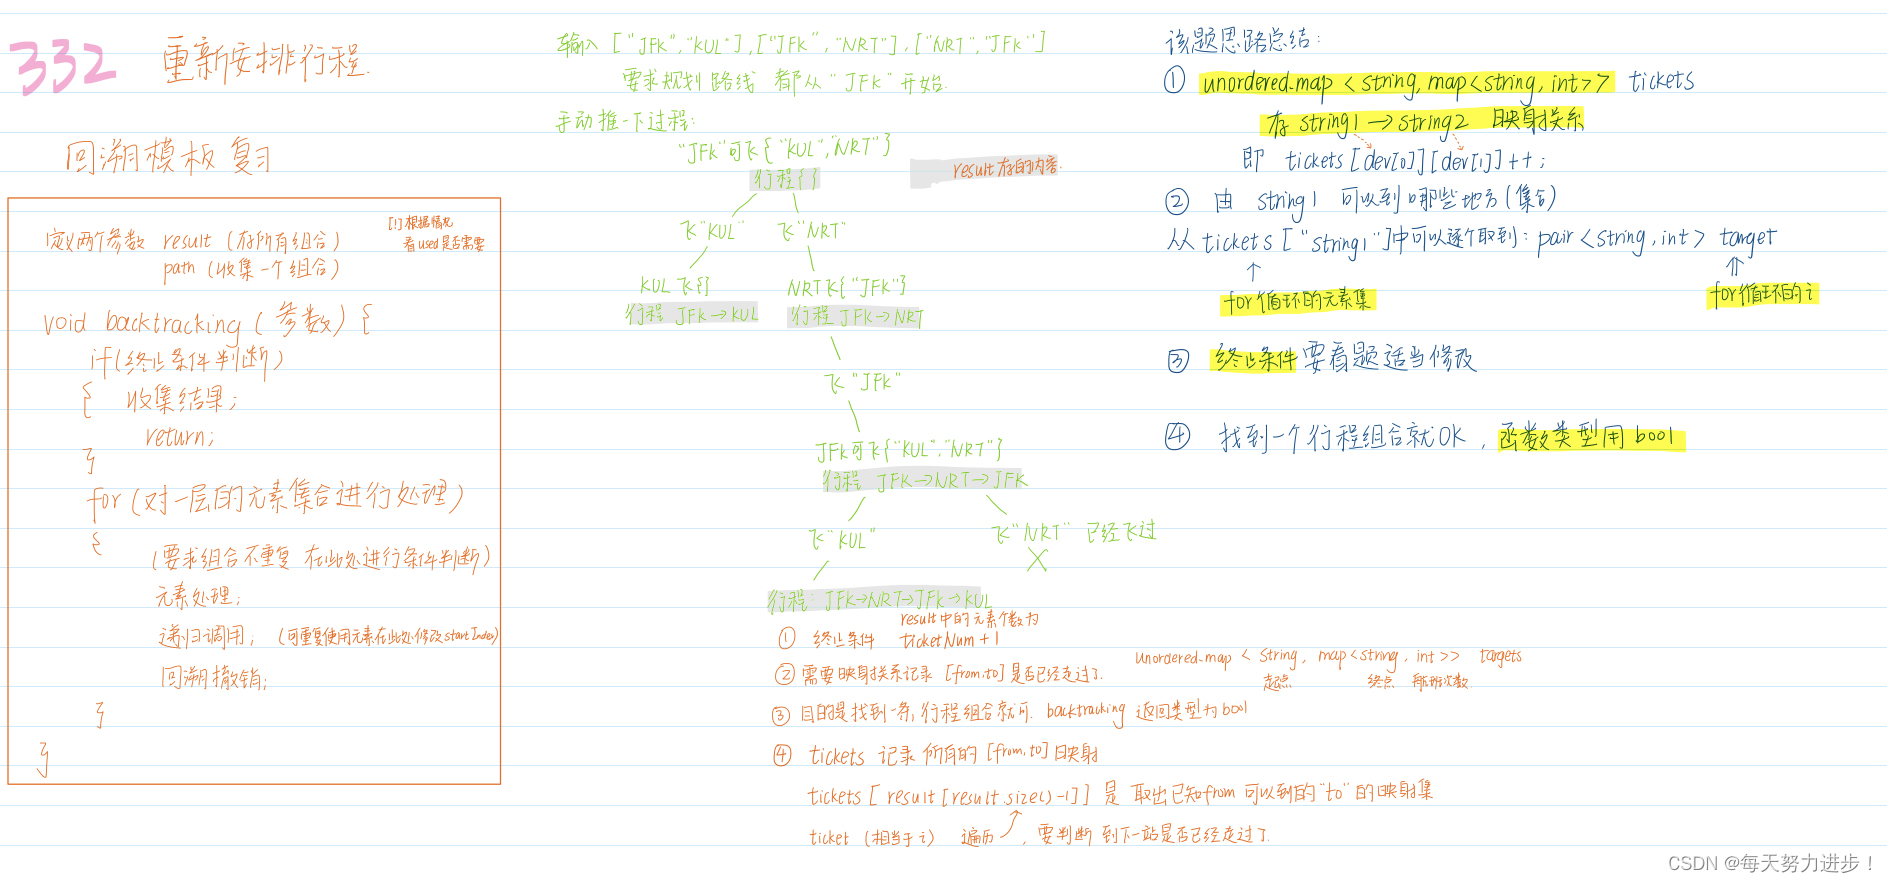 332 重新安排行程.
回溯模板复习
定义两个参数 result (存所有组合)
path (收集一个组合)
[1]根据情况
看used是否需要
void backtracking ( 参数 ) {
if(终止条件判断)
{ 收集结果;
return;
}
for (对一层的元素集合进行处理)
{
(要求组合不重复 在此处进行条件判断)
元素处理;
递归调用; (可重复使用元素在此处修改startIndex)
回溯撤销;
}
}
输入 ["JFK","KUL"],["JFK","NRT"],["NRT","JFK"]
要求规划路线 都从 "JFK" 开始.
手动推一下过程:
"JFK"可飞{"KUL","NRT"}
行程{}
result存的内容.
飞"KUL" 飞"NRT"
KUL飞{} NRT飞{"JFK"}
行程 JFK→KUL 行程 JFK→NRT
飞 "JFK"
JFK可飞{"KUL","NRT"}
行程 JFK→NRT→JFK
飞"KUL" 飞"NRT" 已经飞过
X
行程: JFK→NRT→JFK→KUL
result中的元素个数为
① 终止条件 ticketNum+1
② 需要映射关系记录 [from,to]是否已经走过了.
unordered_map < string, map<string, int>> targets
起点 终点 航班次数
③ 目的是找到一条行程组合就可. backtracking 返回类型为bool
④ tickets 记录所有的 [from,to]映射
tickets [ result [result.size()-1]] 是 取出已知from 可以到的"to"的映射集
ticket (相当于i) 遍历 , 要判断 到下一站是否已经走过了.
该题思路总结:
① unordered_map <string, map<string, int>> tickets
存 string1 → string2 映射关系
即 tickets [dev[0]][dev[1]]++;
② 由 string1 可以到哪些地方(集合)
从 tickets ["string1"]中可以逐个取到: pair<string, int> target
for循环的元素集
for循环的i
③ 终止条件要看题适当修改
④ 找到一个行程组合就OK, 函数类型用bool
CSDN @每天努力进步！